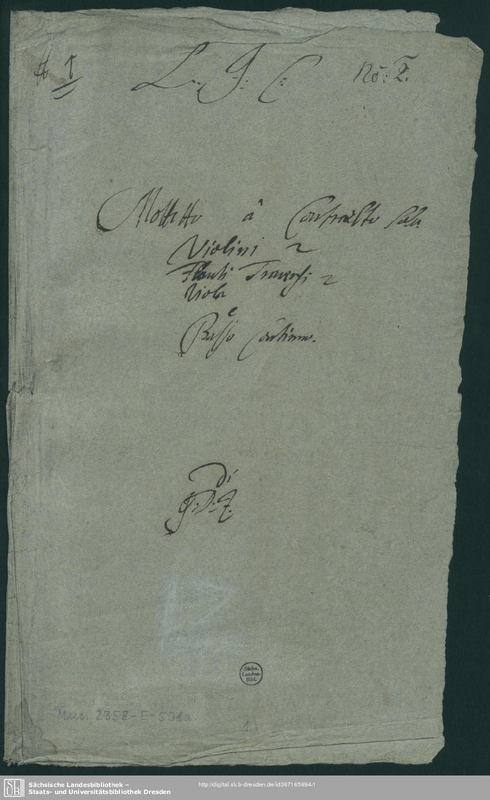 1
L. J. C. No: 2.
Mottetto â Contralto solo
Violini 2
Flauti Traversi 2
Viola
e
Basso Continuo.
Di
G: D: Z.
Säch.
Landes-
Bibl.
Mus. 2358-E-501a
Sächsische Landesbibliothek –
Staats- und Universitätsbibliothek Dresden
http://digital.slub-dresden.de/id387165894/1